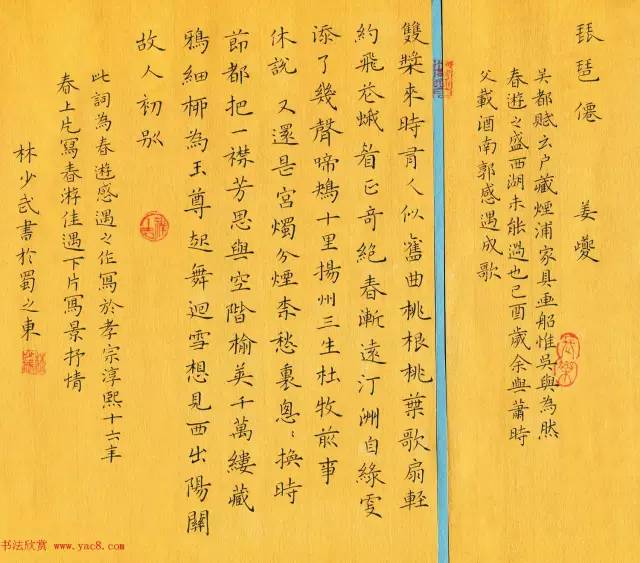 琵琶僊 姜夔
吴都賦云户藏煙浦家具画船惟吳興為然
春遊之盛西湖未能過也己酉歲余與蕭時
父載酒南郭感遇成歌
雙槳來時有人似舊曲桃根桃葉歌扇輕
約飛花蛾眉正奇絕春漸遠汀洲自綠更
添了幾聲啼鴂十里揚州三生杜牧前事
休說 又還是宮燭分煙柰愁裏悤々換時
節都把一襟芳思與空階榆莢千萬縷藏
鴉細柳為玉尊起舞迴雪想見西出陽關
故人初別
此詞為春遊感遇之作寫於孝宗淳熙十六年
春上片寫春游佳遇下片寫景抒情
林少武書於蜀之東
书法欣赏 www.yac8.com